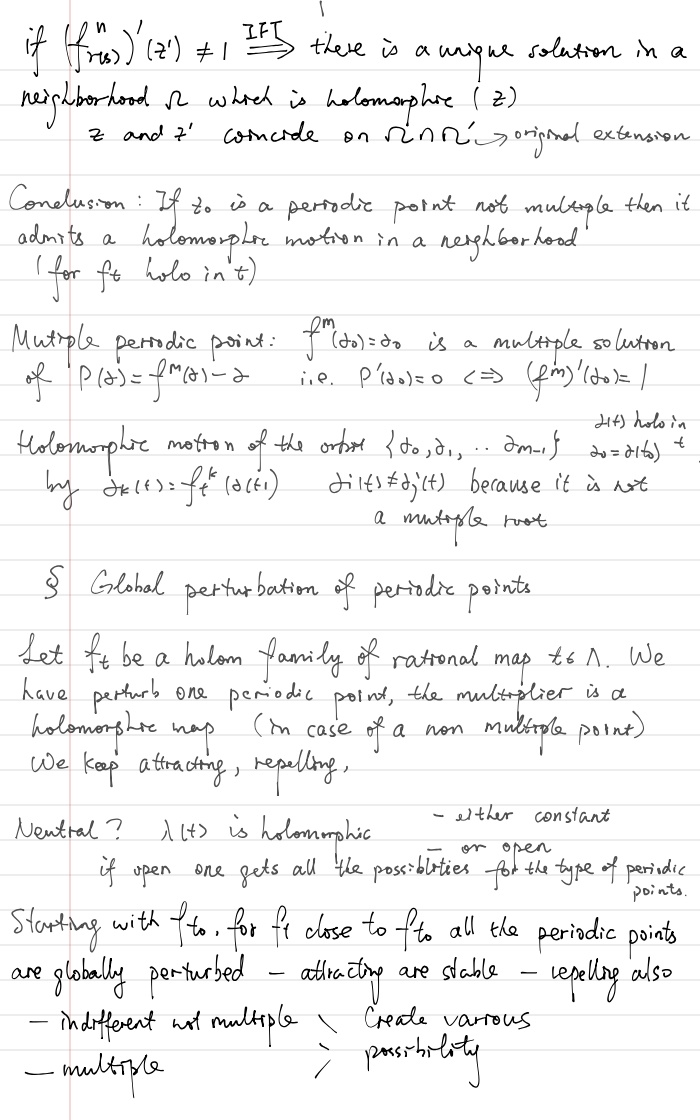 if (f^n_{r(s)})'(z') ≠ 1 ⟹^{IFT} there is a unique solution in a
neighborhood Ω which is holomorphic (z)
z and z' coincide on Ω∩Ω'. → original extension
Conclusion: If z₀ is a periodic point not multiple then it
admits a holomorphic motion in a neighborhood
(for ft holo in t)
Mutiple periodic point: f^m(z₀)=z₀ is a multiple solution
of P(z)=f^m(z)-z i.e. P'(z₀)=0 <=> (f^m)'(z₀)=1
z(t) holo in t
Holomorphic motion of the orbit {z₀,z₁,..z_{m-1}} z₀=z(t₀)
by z_k(t)=f_t^k(z(t)) z_i(t)≠z_j(t) because it is not
a mutiple root
§ Global perturbation of periodic points
Let f_t be a holom family of rational map t∈Λ. We
have perturb one periodic point, the multiplier is a
holomorphic map (in case of a non multiple point)
We keep attracting, repelling,
Neutral? λ(t) is holomorphic - either constant
- or open
if open one gets all the possiblities for the type of periodic
points.
Starting with f_{t₀}, for f_t close to f_{t₀} all the periodic points
are globally perturbed - attracting are stable - repelling also
- indifferent not multiple \ Create various
- multiple / possibility